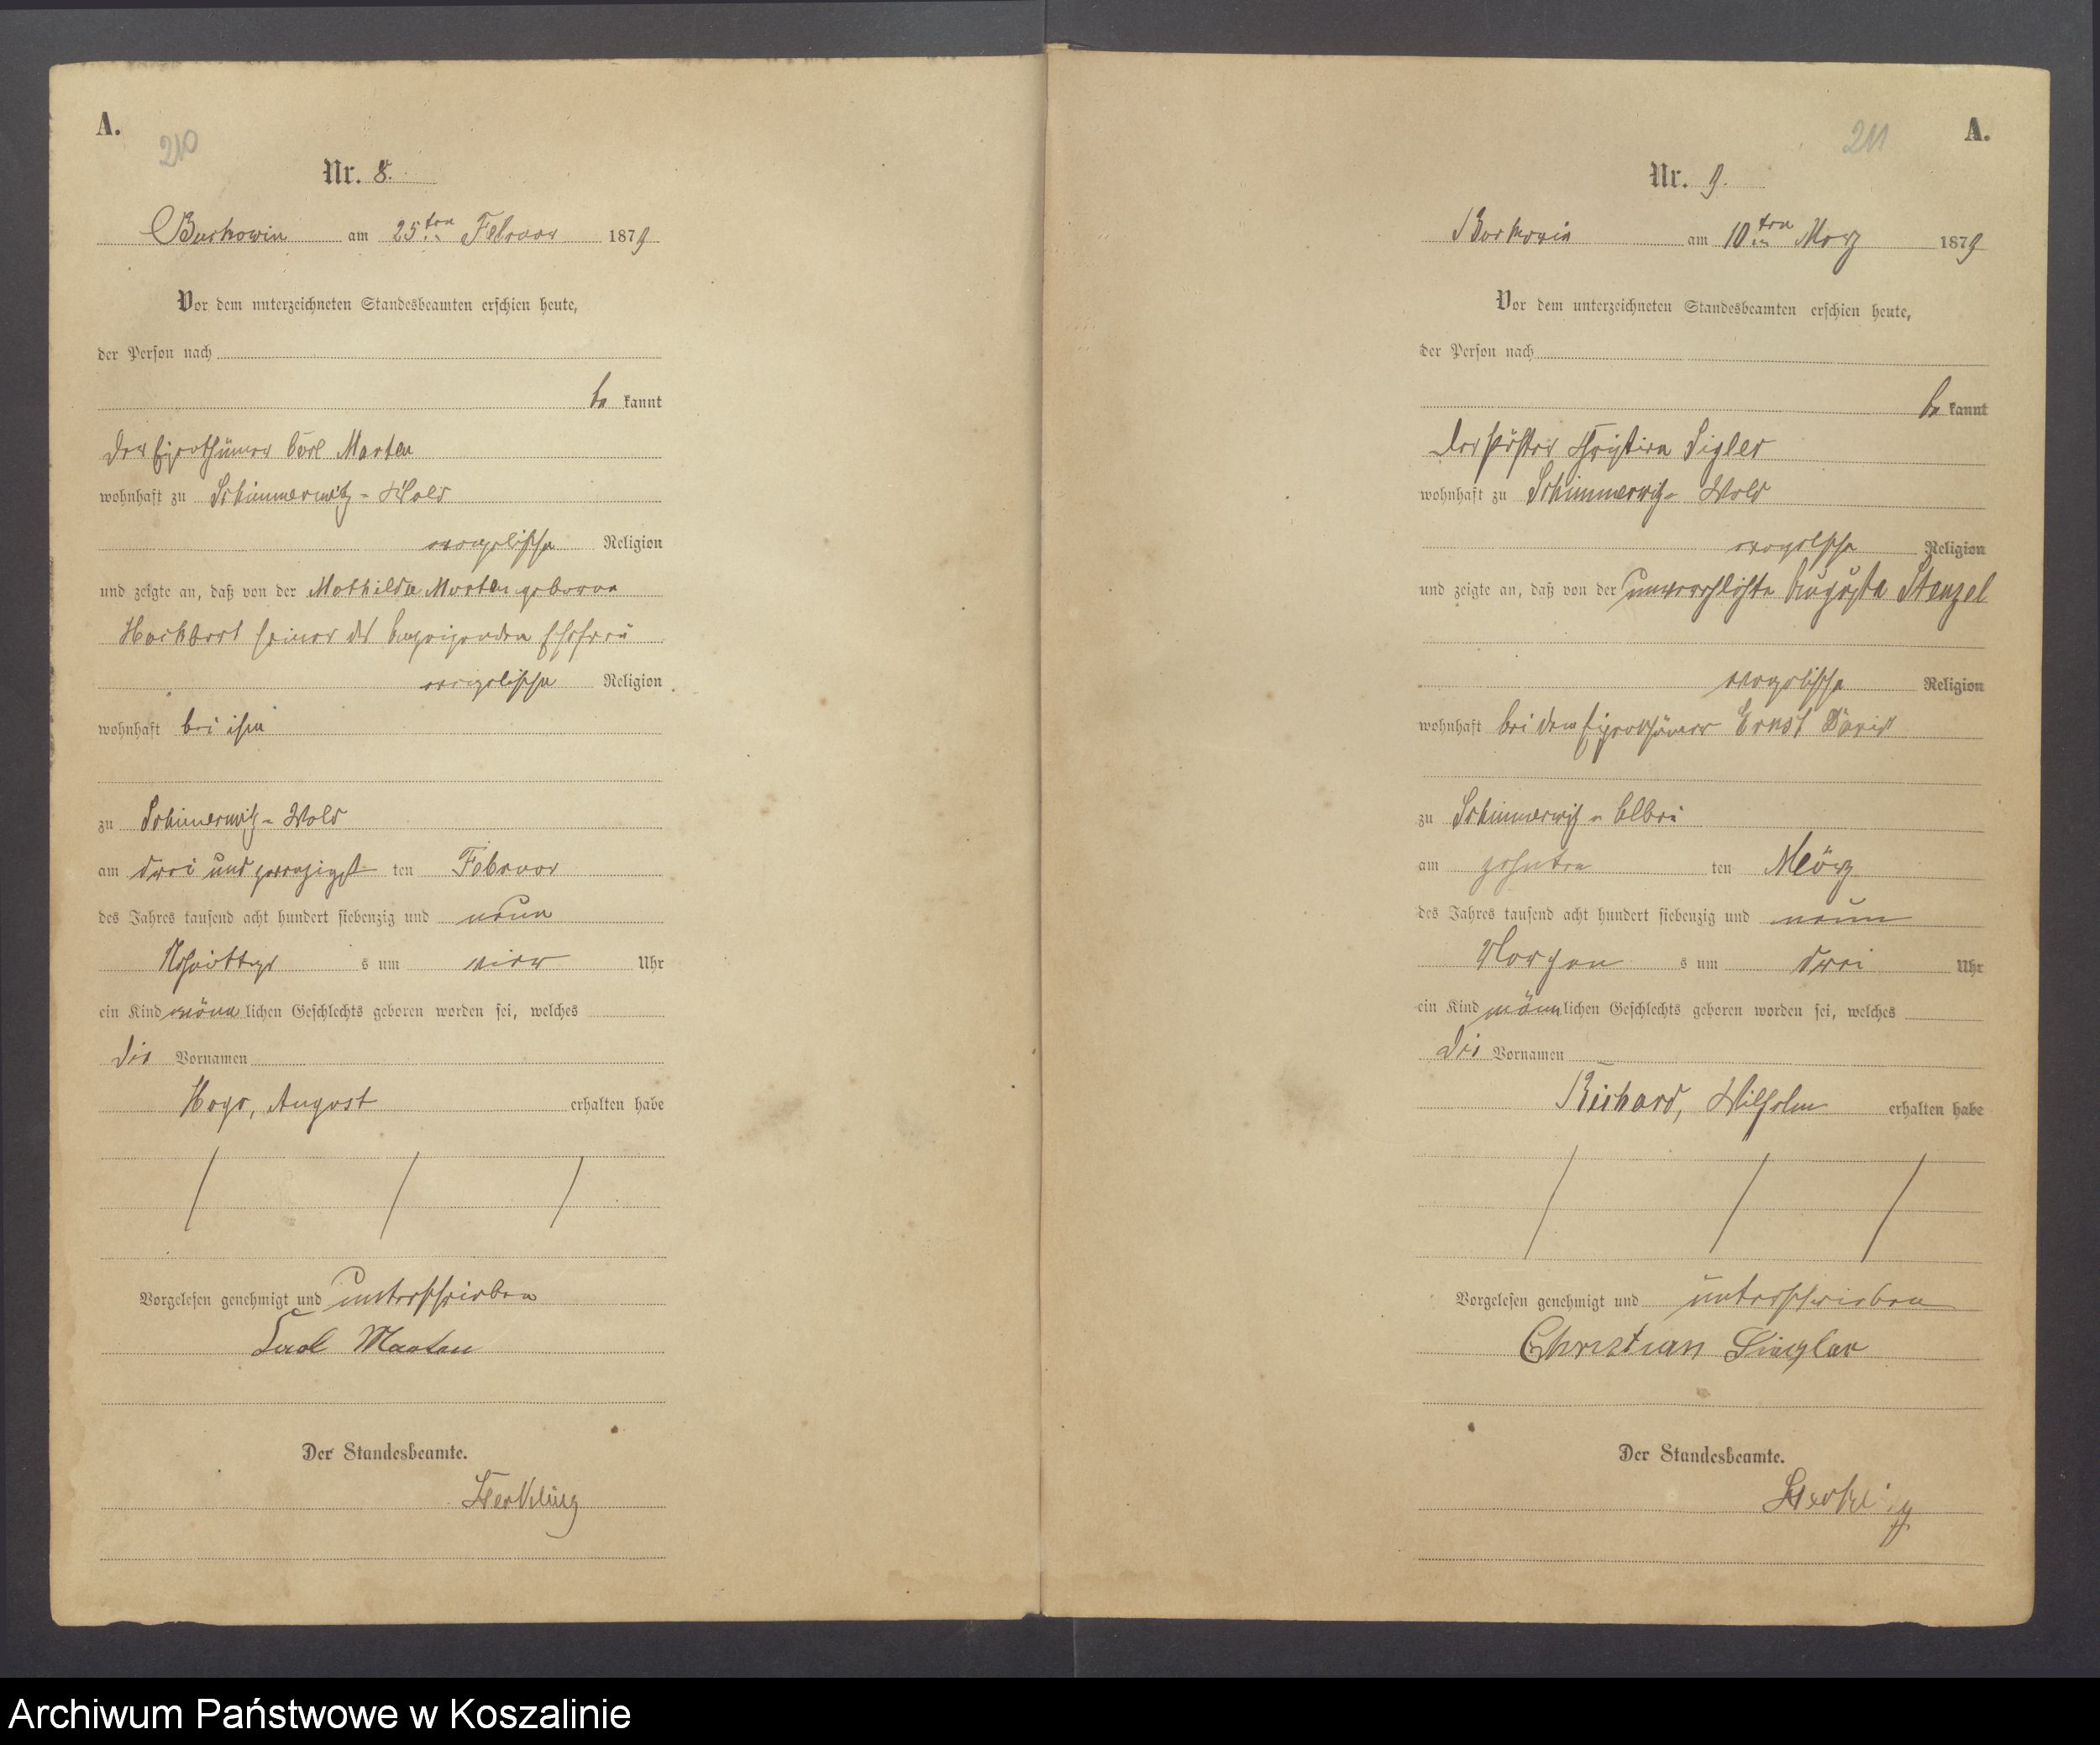 A.
210
Nr. 8.
Burkowin am 25ten Februar 1879
Vor dem unterzeichneten Standesbeamten erschien heute,
der Person nach
be kannt
der Eigenthümer Carl Marten
wohnhaft zu Schimmerwitz-Wald
evangelischer Religion
und zeigte an, daß von der Mathilde Marten geborene
seiner des Anzeigenden Ehefrau
evangelischer Religion
wohnhaft bei ihm
zu Schimmerwitz-Wald
am drei und zwanzigst ten Februar
des Jahres tausend acht hundert siebenzig und neun
Nachmittags s um vier Uhr
ein Kind männ lichen Geschlechts geboren worden sei, welches
die Vornamen
Hugo, August erhalten habe
Vorgelesen genehmigt und unterschrieben
Carl Marten
Der Standesbeamte.
A.
211
Nr. 9.
Burkowin am 10ten März 1879
Vor dem unterzeichneten Standesbeamten erschien heute,
der Person nach
be kannt
der Christian Sigler
wohnhaft zu Schimmerwitz-Wald
evangelischer Religion
und zeigte an, daß von der unverehelichte Auguste Stenzel
evangelischer Religion
wohnhaft bei dem Eigenthümer Ernst
zu Schimmerwitz-
am zehnten ten März
des Jahres tausend acht hundert siebenzig und neun
Morgen s um drei Uhr
ein Kind männ lichen Geschlechts geboren worden sei, welches
die Vornamen
Richard, Wilhelm erhalten habe
Vorgelesen genehmigt und unterschrieben
Christian Siegler
Der Standesbeamte.
Archiwum Państwowe w Koszalinie